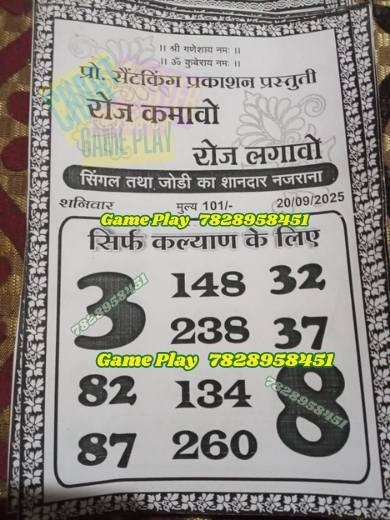 ।। श्री गणेशाय नमः ।।
।। ॐ कुबेराय नमः ।।
प्रो. सेंटकिंग प्रकाशन प्रस्तुती
रोज कमावो
GAME PLAY
रोज लगावो
सिंगल तथा जोडी का शानदार नजराना
शनिवार मूल्य 101/- 20/09/2025
Game Play 7828958451
सिर्फ कल्याण के लिए
3 148 32
7828958451
238 37
Game Play 7828958451
82 134 8
7828958451
87 260